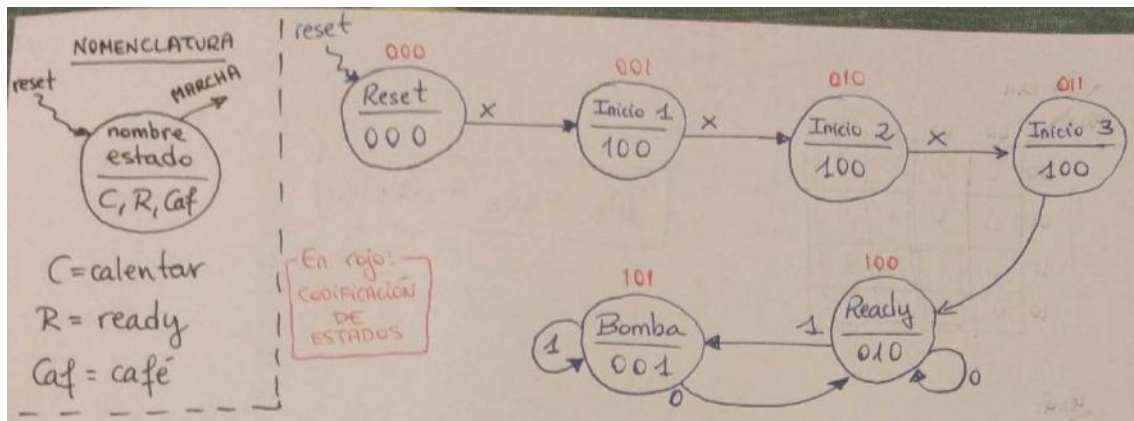 NOMENCLATURA
reset
MARCHA
nombre
estado
C, R, Caf
C=calentar
R = ready
Caf = café
reset
000
Reset
000
X
001
Inicio 1
100
X
010
Inicio 2
100
X
011
Inicio 3
100
En rojo:
CODIFICACIÓN
DE
ESTADOS
101
Bomba
001
1
0
1
100
Ready
010
0